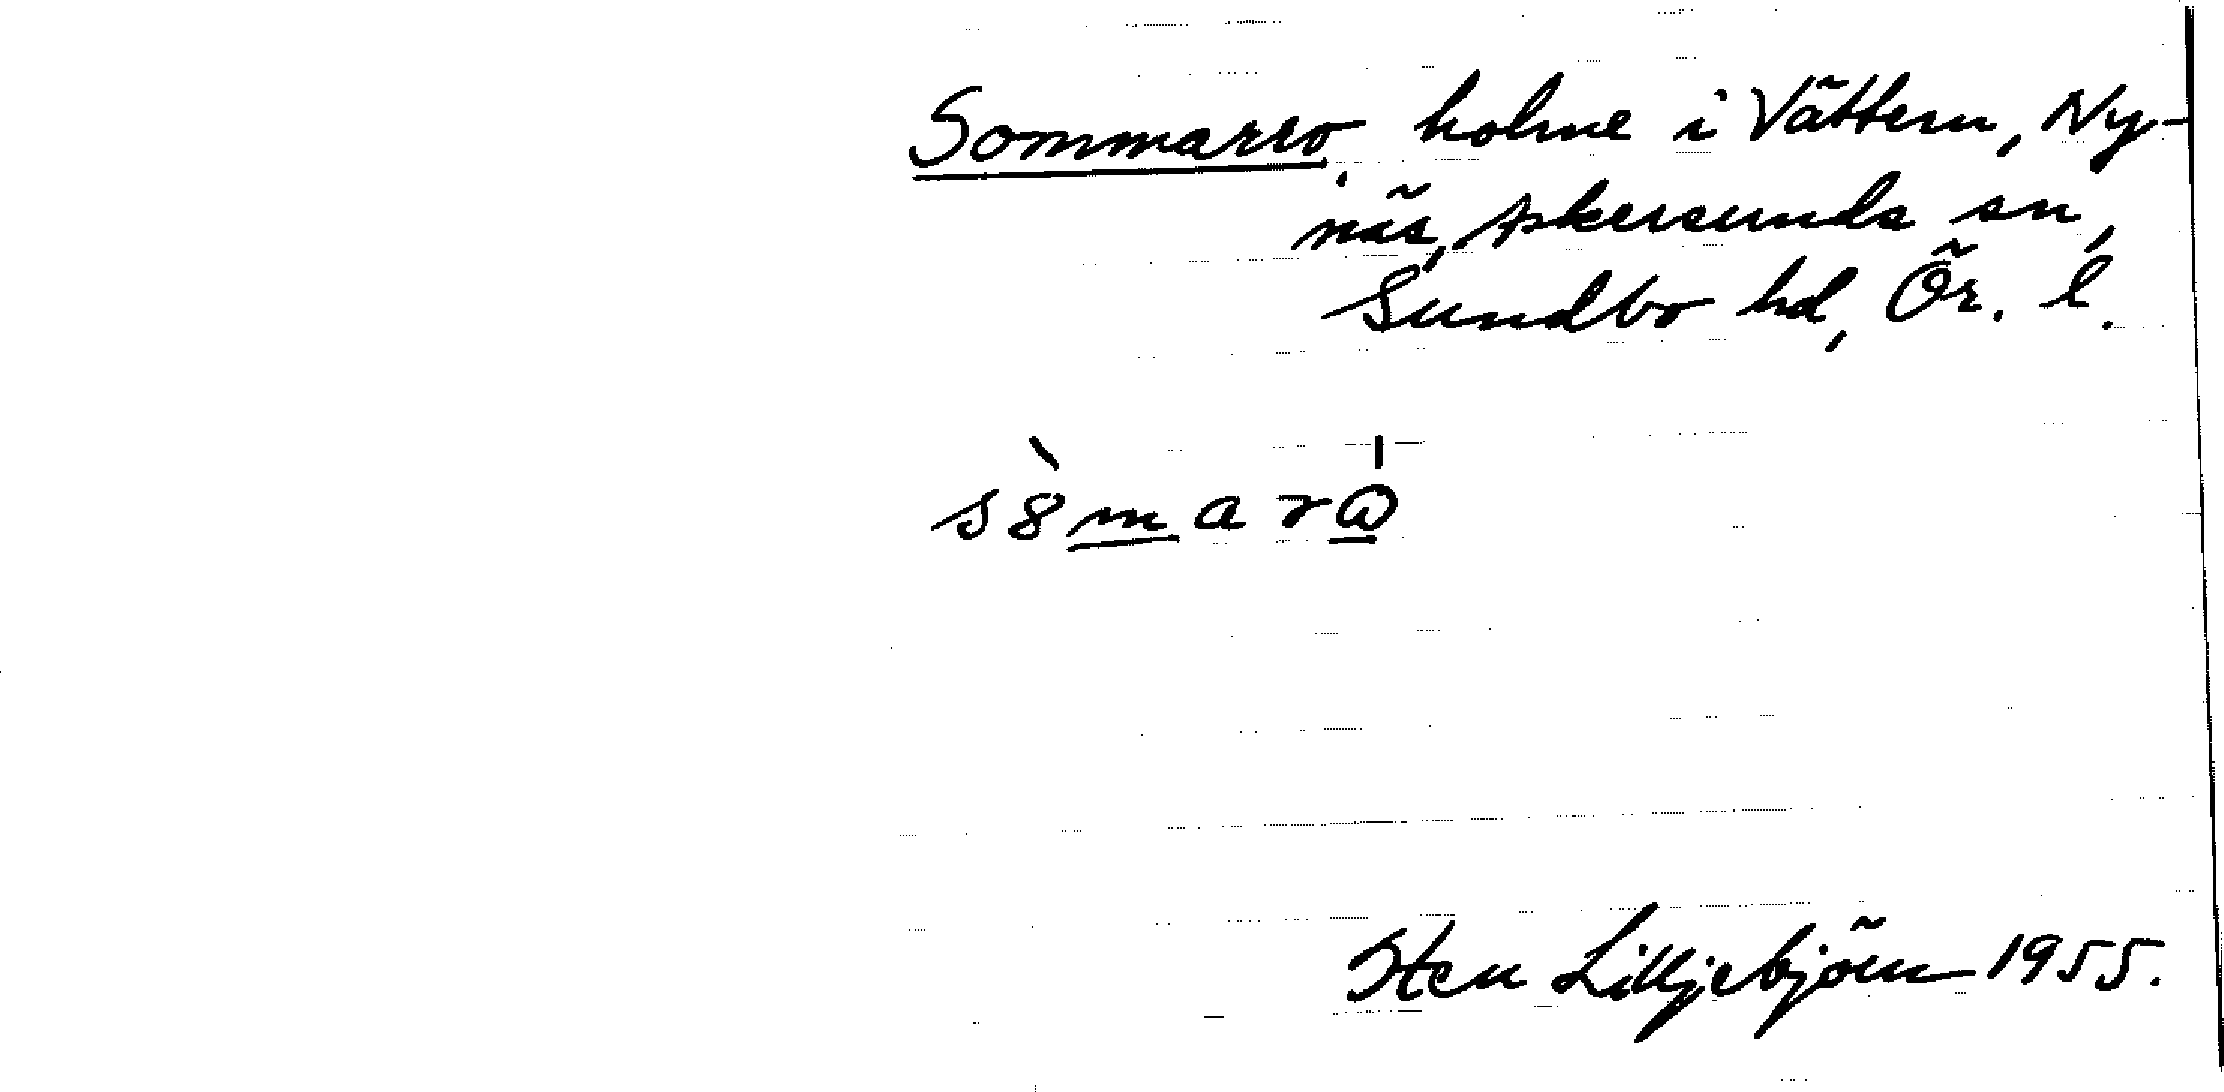 Sommarro, holme i Vättern, Ny-
näs, Askersunds sn,
Sundbo hd, Ör. l.
s8̀marω̍
Sten Lilljebjörn 1955.